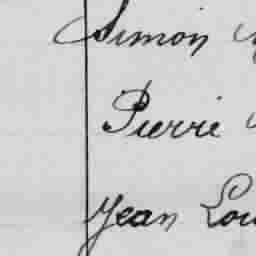 Simon
Pierre
Jean Lou